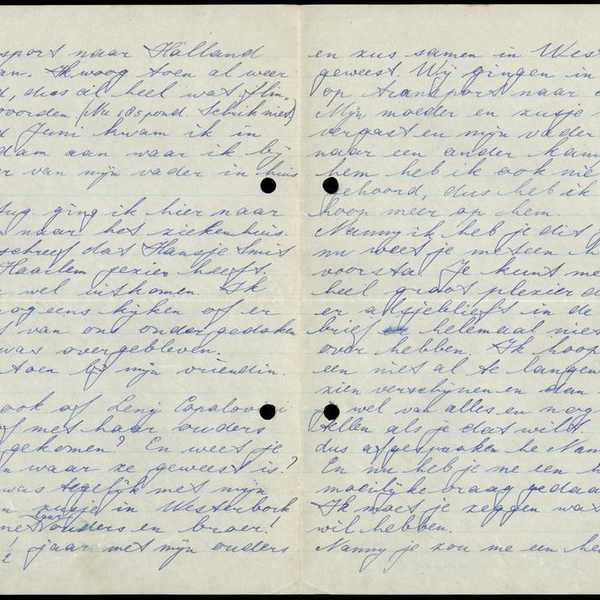 sport naar Holland
an. Ik woog toen al weer
d, dus al heel wat
oorden (Nu 18 pond. Schrik niet)
d Juni kwam ik in
dam aan waar ik bij
r van mijn vader in huis
ging ik hier naar
naar het ziekenhuis.
schreef dat Hansje Smit
Haarlem gezien heeft.
wel uitkomen. Ik
nog eens kijken of er
s van ons onder gedoken
was overgebleven.
toen bij mijn vriendin.
ook of Leny
of met haar ouders
gekomen? En weet je
n waar ze geweest is?
was tegelijk met mijn
zusje in Westerbork
met ouders en broer!
jaar met mijn ouders
en zus samen in West
geweest. Wij gingen in
op transport naar
Mijn moeder en zusje
vergast en mijn vader
naar een ander kam
hem heb ik ook nie
gehoord, dus heb ik
hoop meer op hem.
Nanny ik heb je dit
nu weet je meteen h
voorsta. Je kunt me
heel groot plezier
er alsjeblieft in de
brief helemaal nie
over hebben. Ik hoop
een niet al te lange
zien verschijnen en dan
wel van alles en nog
tellen als je dat wilt
dus afgesproken he Nan
En nu heb je me een
moeilijke vraag gedaa
Ik moet je zeggen wat
wil hebben.
Nanny je zou me een he